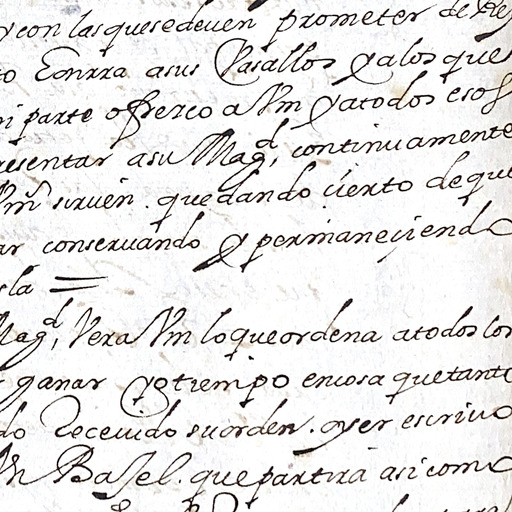 y con las que se deven prometer de
to Eonrra a sus Vasallos y a los que
mi parte ofrezco a Vm y a todos esos
resentar a su Magd, continuamente
Vm sirven . quedando cierto de que
ar conservando y permaneciendo
sla =
Magd, Vera Vm lo que ordena a todos los
ganar yotiempo en cosa que tanto
do Recevido su orden . ayer escrivo
Vn Basel . que partirá asi como